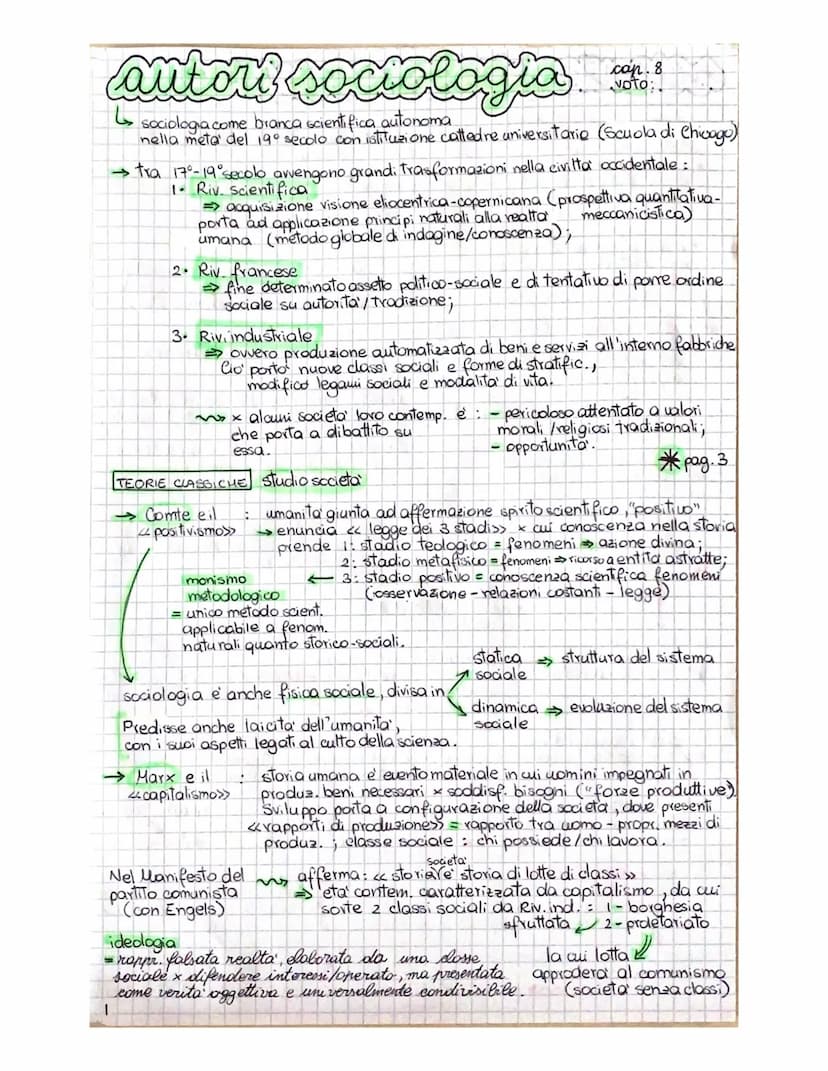 autori sociologia
cap. 8
voto:
↳ sociologia come branca scientifica autonoma
nella metà del 19° secolo con istituzione cattedre universitarie (Scuola di Chicago)
→ tra 17°-19° secolo avvengono grandi trasformazioni nella civiltà occidentale :
1• Riv. scientifica
⇒ acquisizione visione eliocentrica-copernicana (prospettiva quantitativa-
porta ad applicazione principi naturali alla realtà meccanicistica)
umana (metodo globale di indagine/conoscenza);
2• Riv. francese
⇒ fine determinato assetto politico-sociale e di tentativo di porre ordine
sociale su autorità/tradizione;
3• Riv. industriale
⇒ ovvero produzione automatizzata di beni e servizi all'interno fabbriche
Ciò portò nuove classi sociali e forme di stratific.,
modificò legami sociali e modalità di vita.
x alcuni società loro contemp. è : - pericoloso attentato a valori
che porta a dibattito su morali/religiosi tradizionali;
essa. - opportunità.
* pag.3
TEORIE CLASSICHE studio società
→ Comte e il : umanità giunta ad affermazione spirito scientifico, "positivo"
<<positivismo>> → enuncia << legge dei 3 stadi>> x cui conoscenza nella storia
prende 1: stadio teologico = fenomeni ⇒ azione divina;
2: stadio metafisico = fenomeni ⇒ ricorso a entità astratte;
monismo ← 3: stadio positivo = conoscenza scientifica fenomeni
metodologico (osservazione - relazioni costanti - legge)
= unico metodo scient.
applicabile a fenom.
naturali quanto storico-sociali.
statica ⇒ struttura del sistema
sociale
sociologia è anche fisica sociale, divisa in
dinamica ⇒ evoluzione del sistema
sociale
Predisse anche laicità dell'umanità,
con i suoi aspetti legati al culto della scienza.
→ Marx e il : storia umana è evento materiale in cui uomini impegnati in
<<capitalismo>> produz. beni necessari x soddisf. bisogni ("forze produttive).
Sviluppo porta a configurazione della società, dove presenti
<<rapporti di produzione>> = rapporto tra uomo - propr. mezzi di
produz. ; classe sociale : chi possiede/chi lavora.
società
Nel Manifesto del afferma: << storia è storia di lotte di classi >>
partito comunista ⇒ età contem. caratterizzata da capitalismo, da cui
(con Engels) sorte 2 classi sociali da Riv. ind. : 1- borghesia
sfruttata 2- proletariato
ideologia la cui lotta
= rappr. falsata realtà, elaborata da una classe approderà al comunismo
sociale x difendere interessi/operato, ma presentata (società senza classi)
come verità oggettiva e universalmente condivisibile.
1